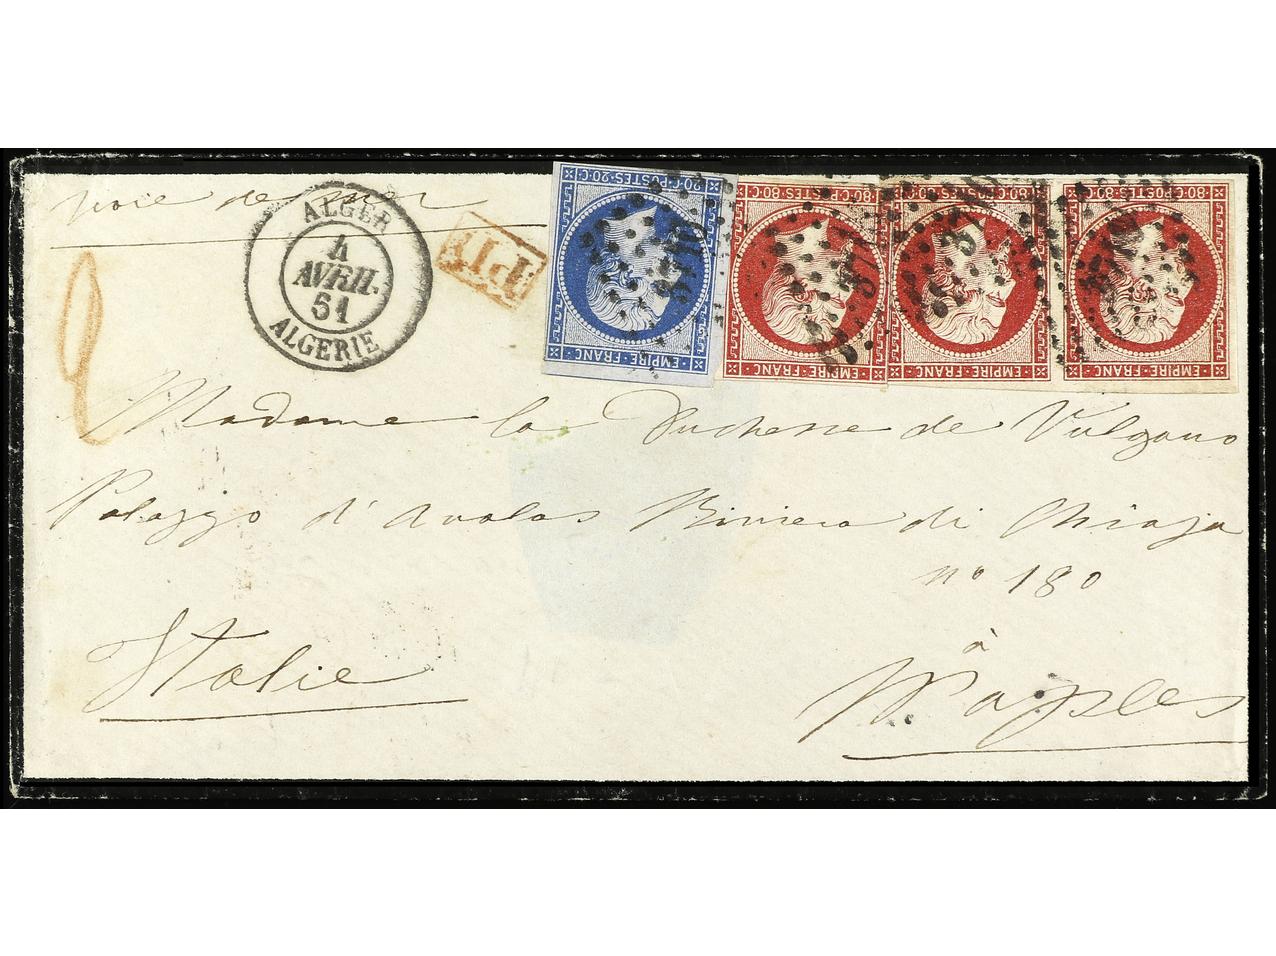 voie de mer
ALGER
4
AVRIL
61
ALGERIE
P.P.
20·C·POSTES·20·C
EMPIRE·FRANC
80·C·POSTES·80·C
EMPIRE·FRANC
80·C·POSTES·80·C
EMPIRE·FRANC
80·C·POSTES·80·C
EMPIRE·FRANC
Madame la Duchesse de Vulgano
Palazzo d'Avalos Riviera di Chiaja
n° 180
à
Naples
Italie